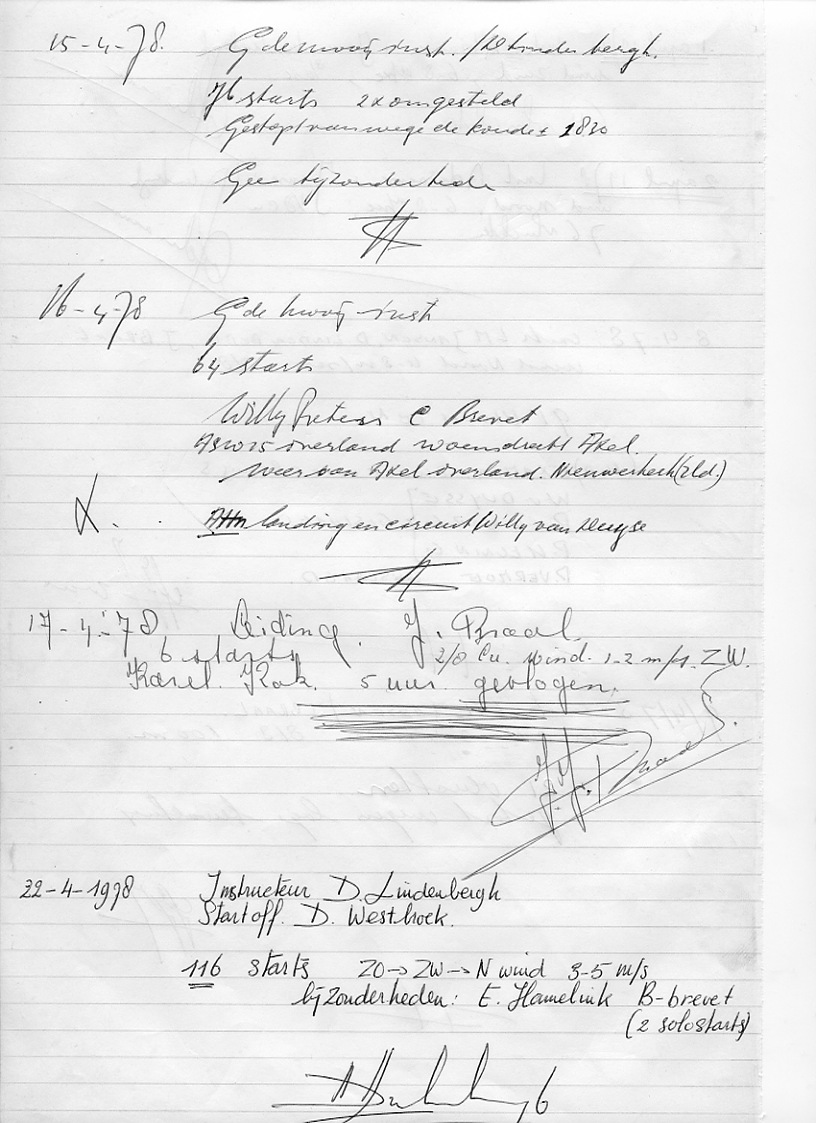 15-4-78. G de mooij inst. / D Lindenbergh.
76 starts 2x omgesteld
Gestopt vanwege de koude ± 1830
Gee bijzonderhede
16-4-78 G de mooij inst
64 starts
Willy Pieters C Brevet
ASW15 overland woensdrecht Axel.
weer van Axel overland. Nieuwerkerk (zld.)
landing en circuit Willy van
17-4-78. Leiding. J. Braal
6 starts 2/8 Cu. wind. 1-2 m/s. ZW.
Karel. Kok. 5 uur gevlogen.
22-4-1978 Instructeur D. Lindenbergh
Start off. D. Westhoek.
116 starts ZO→ZW→N wind 3-5 m/s
bijzonderheden: E. Hamelink B-brevet
(2 solostarts)